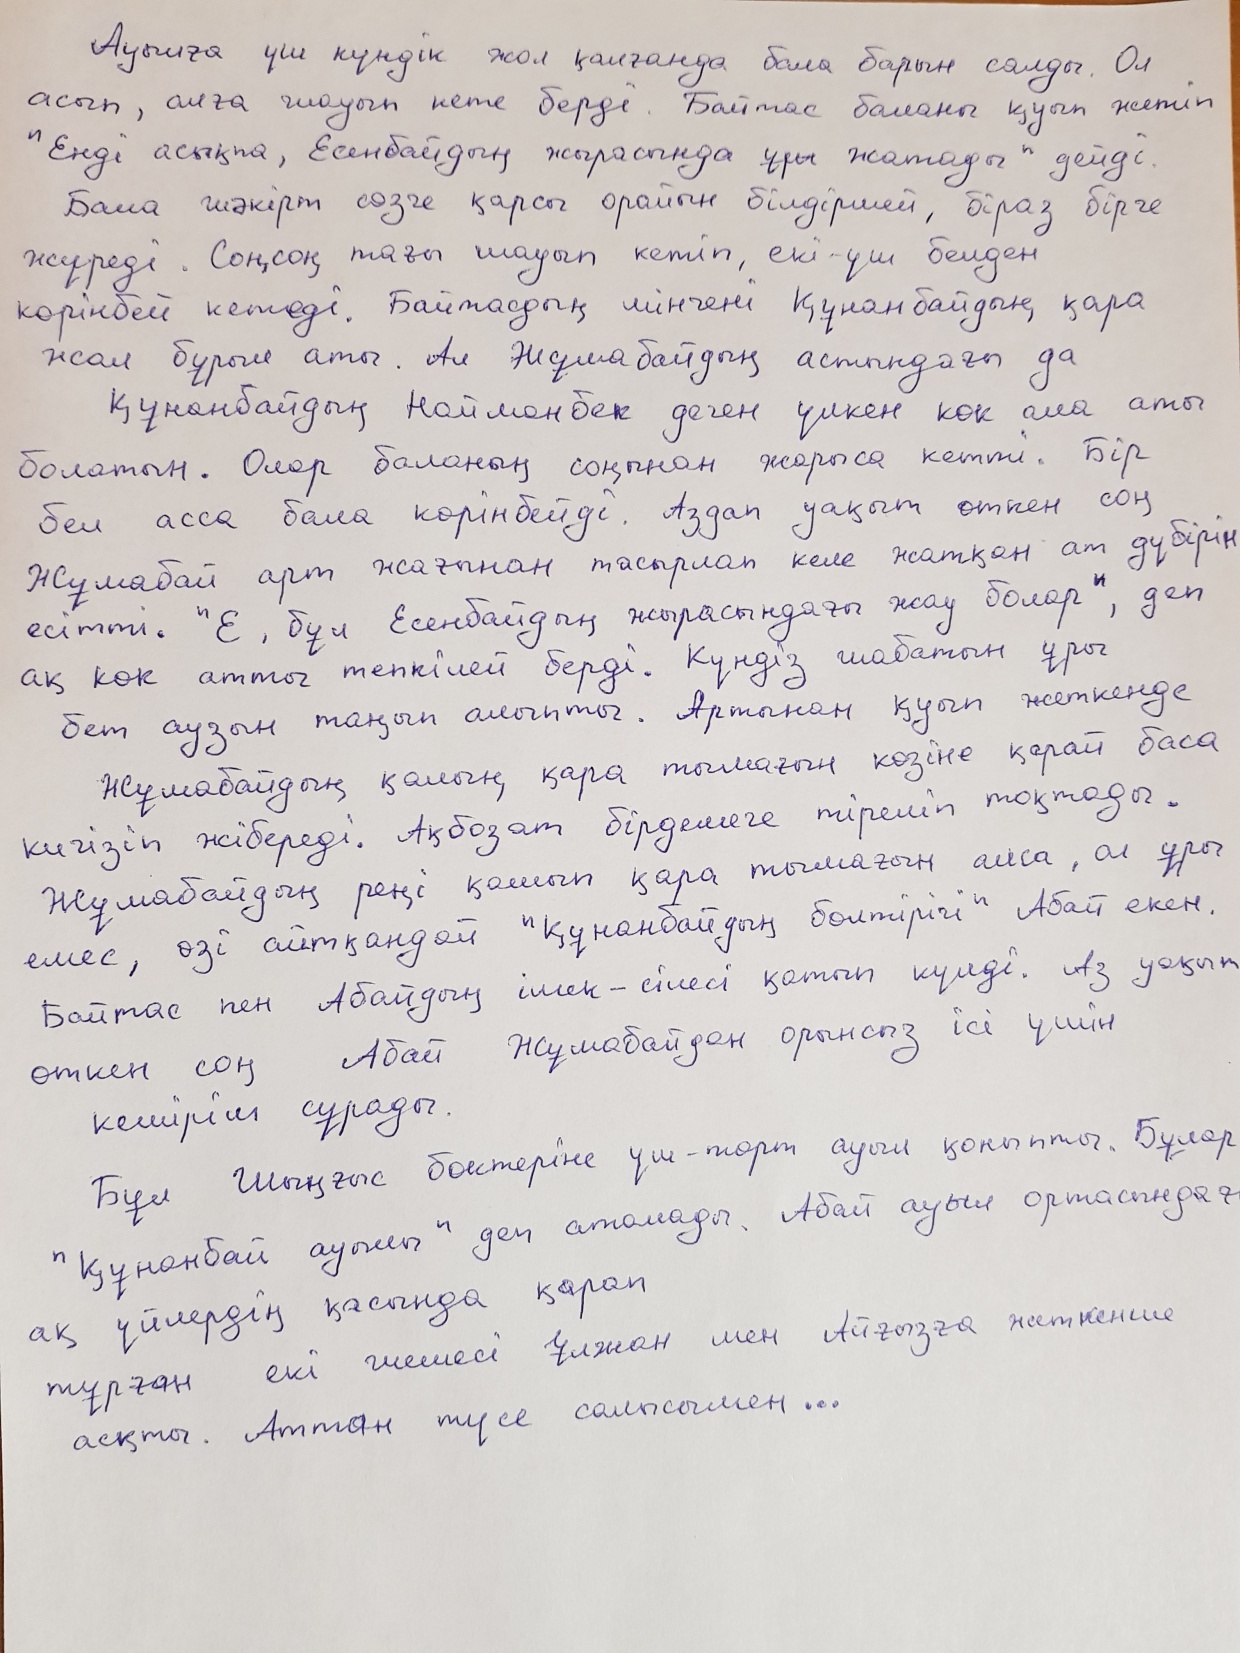 Ауылға үш күндік жол қалғанда бала барын салды. Ол
асып, алға шауып кете берді. Байтас баланы қуып жетіп
"Енді асықпа, Есенбайдың жырасында ұры жатады" дейді.
Бала шәкірт сөзге қарсы орайын білдірмей, біраз бірге
жүреді. Соңсоң тағы шауып кетіп, екі-үш белден
көрінбей кетеді. Байтасдың мінгені Құнанбайдың қара
жал бұрыл аты. Ал Жұмабайдың астындағы да
Құнанбайдың Найманбек деген үлкен көк ала аты
болатын. Олар баланың соңынан жарыса кетті. Бір
бел асса бала көрінбейді. Аздап уақыт өткен соң
Жұмабай арт жағынан тасырлап келе жатқан ат дүбірін
есітті. "Е, бұл Есенбайдың жырасындағы жау болар", деп
ақ көк атты тепкілей берді. Күндіз шабатын ұры
бет аузын таңып алыпты. Артынан қуып жеткенде
Жұмабайдың қалың қара тымағын көзіне қарай баса
кигізіп жібереді. Ақбозат бірдемеге тіреліп тоқтады.
Жұмабайдың реңі қашып қара тымағын алса, ал ұры
емес, өзі айтқандай "Құнанбайдың бөлтірігі" Абай екен.
Байтас пен Абайдың ішек-сілесі қатып күлді. Аз уақыт
өткен соң Абай Жұмабайдан орынсыз ісі үшін
кешірім сұрады.
Бұл Шыңғыс бөктеріне үш-төрт ауыл қоныпты. Бұлар
"Құнанбай ауылы" деп аталады. Абай ауыл ортасындағы
ақ үйлердің қасында қарап
тұрған екі шешесі Ұлжан мен Айғызға жеткенше
асқты. Аттан түсе салысымен...